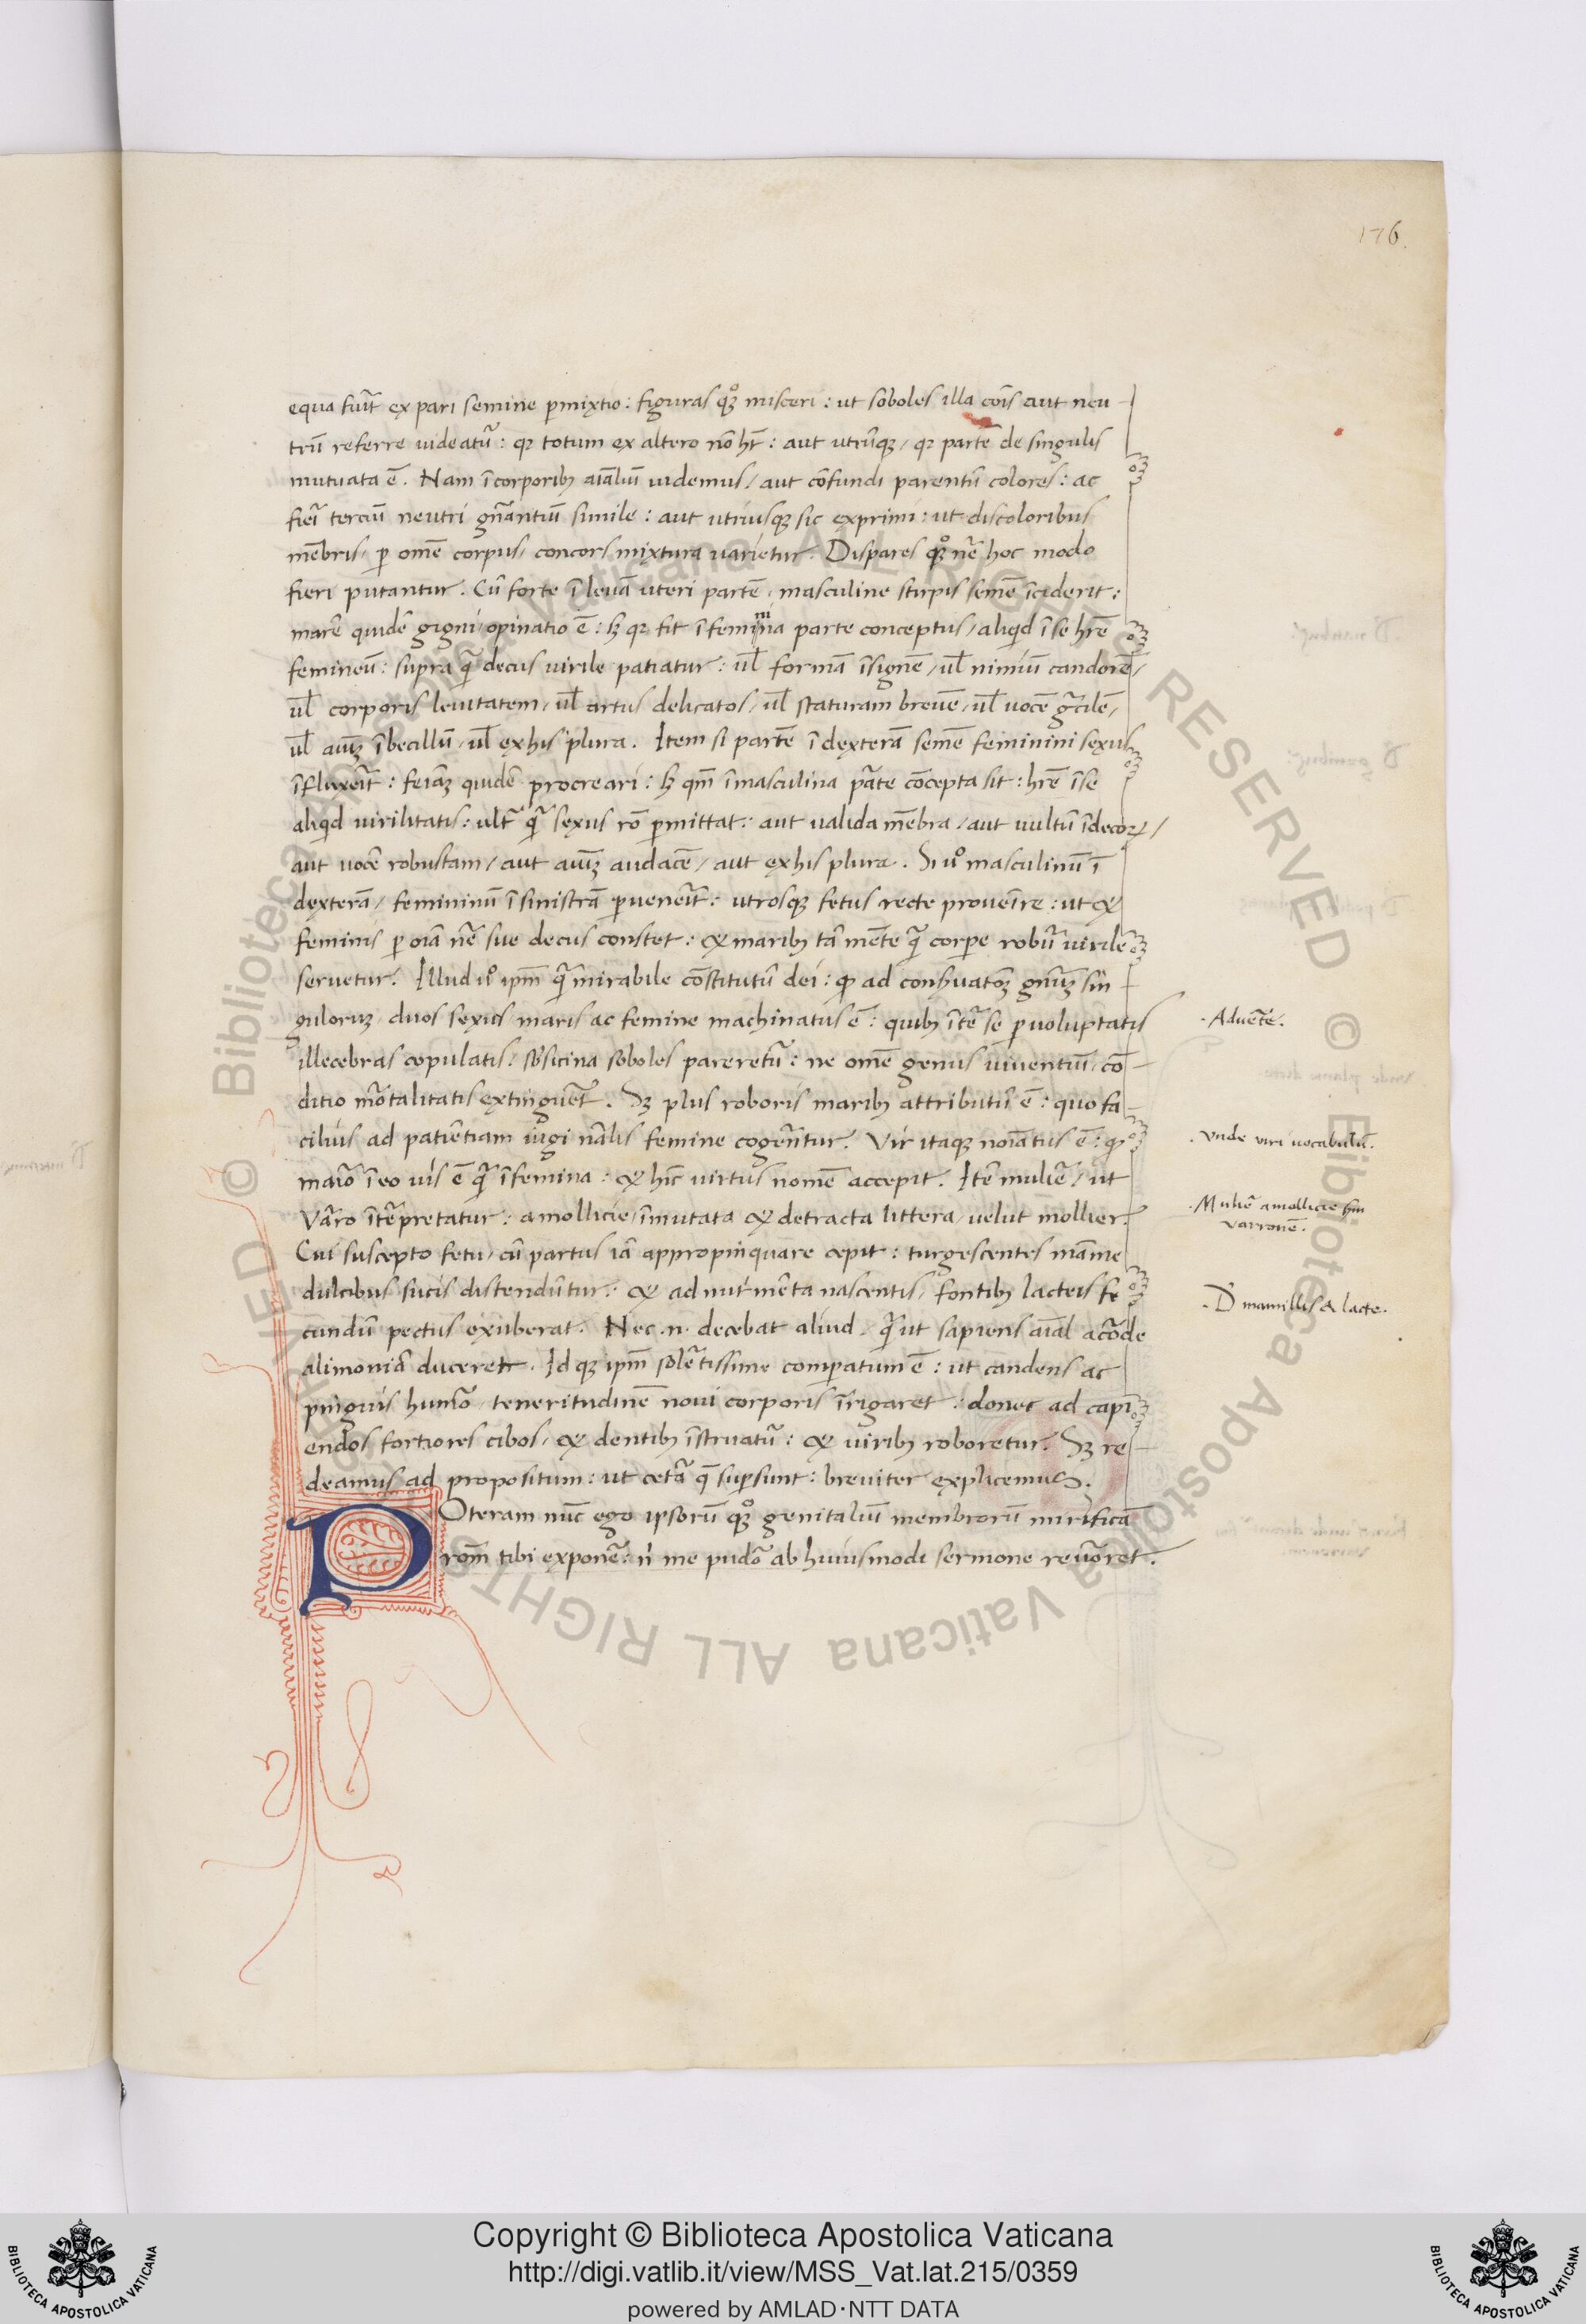 176.
equa fuit̃ ex pari semine p̱mixtio: figuras qͦꝫ misceri: ut soboles illa cõis aut neu
trũ referre uideatũ: qꝛ totum ex altero nõ hꝫ̃: aut utrũqꝫ / qꝛ partẽ de singulis
mutuata ẽ. Nam ĩ corporibꝫ aĩaliũ uidemus / aut cõfundi parentũ colores: ac
fierĩ terciũ neutri gñantiũ simile: aut utriusqꝫ sic exprimi: ut discoloribus
mẽbris / ꝑ omẽ corpus / concors mixtura varietur. Dispares qͦꝫ nẽ hoc modo
fieri putantur. Cũ forte ĩ leuã uteri partẽ / masculine stirpis semẽ ĩciderit:
marẽ quidẽ gigni / opinatio ẽ: sꝫ qꝛ fit ĩ feminina parte conceptus / aliqid ĩ se hr̃e
femineũ: supra q̃ decus uirile patiatur: ul̃ formã ĩsignẽ / ul̃ nimiũ candorẽ /
ul̃ corporis leuitatem / ul̃ artus delicatos / ul̃ staturam breuẽ / ul̃ uocẽ gͣcilẽ /
ul̃ aĩuꝫ ĩbecillũ / ul̃ ex his plura. Item si partẽ ĩ dexterã semẽ feminini sexus
ĩfluxerit̃: feĩaꝫ quidẽ procreari: sꝫ qm̃ ĩ masculina pãte cõcepta sit: hr̃e ĩ se
aliqid uirilitatis: ultͣ q̃ sexus rõ ꝑmittat: aut ualida mẽbra / aut uultũ ĩdecorꝫ /
aut uocẽ robustam / aut aĩuꝫ audacẽ / aut ex his plura. Si uͦ masculinũ ĩ
dexterã / femininũ ĩ sinistrã ꝑuenerit̃: utrosqꝫ fetus recte prouenĩre: ut &
feminis ꝑ oĩa nẽ sue decus constet: & maribꝫ tã mẽte q̃ corpe robũ uirilẽ
seruetur. Illud uͦ ip̃m q̃ mirabile cõstitutũ dei: ꝙ ad conẞuatõꝫ gñuꝫ sin
guloruꝫ duos sexus maris ac femine machinatus ẽ: quibꝫ ĩtẽ se ꝑ uoluptatis
illecebras copulatis / sb̃sicina soboles pareretũ: ne omẽ genus uiuentiũ / cõ
ditio mõtalitatis extinguẽt. Sꝫ plus roboris maribꝫ attributũ ẽ: quo fa
cilius ad patiẽtiam iũgi nãlis femine cogerẽtur. Vir itaqꝫ noĩatus ẽ: ꝙ
maiõ ĩ eo uis ẽ q̃ ĩ femina: & hĩc uirtus nomẽ accepit. Itẽ muliẽ / ut
Vãro ĩtẽpretatur: a mollicie / ĩmutata & detracta littera / uelut mollier.
Cui suscepto fetu / cũ partus iã appropinquare cepit: turgescentes mãme
dulcibus sucis distendũtur: & ad nut̃mẽta nascentis / fontibꝫ lacteis fe
cundũ pectus exuberat. Nec .n. decebat aliud / q̃ ut sapiens aĩal a cõde
alimoniã duceret. Id qꝫ ip̃m solẽtissime comꝑatum ẽ: ut candens ac
pinguis humõ / teneritudinẽ noui corporis ĩrigaret: donec ad capi
endos fortiores cibos / & dentibꝫ ĩstruatũ: & uiribꝫ roboretur. Sꝫ re
deamus ad propositum: ut cetã q̃ suꝑsunt: breuiter explicemus.
POteram nũc ego ipsorũ qͦꝫ genitaliũ membrorũ mirificã
rõm tibi exponẽ: nͥ me pudõ ab huiusmodi sermone reuõret.
.Aduẽte.
.Vnde uiri uocabulũ.
.Muliẽ a mollicie scᷤm
varronẽ.
.D̃ mamillis & lacte.
Copyright © Biblioteca Apostolica Vaticana
http://digi.vatlib.it/view/MSS_Vat.lat.215/0359
powered by AMLAD·NTT DATA
BIBLIOTECA APOSTOLICA VATICANA
BIBLIOTECA APOSTOLICA VATICANA
© Biblioteca Apostolica Vaticana ALL RIGHTS RESERVED © Biblioteca Apostolica Vaticana ALL RIGHTS RESERVED